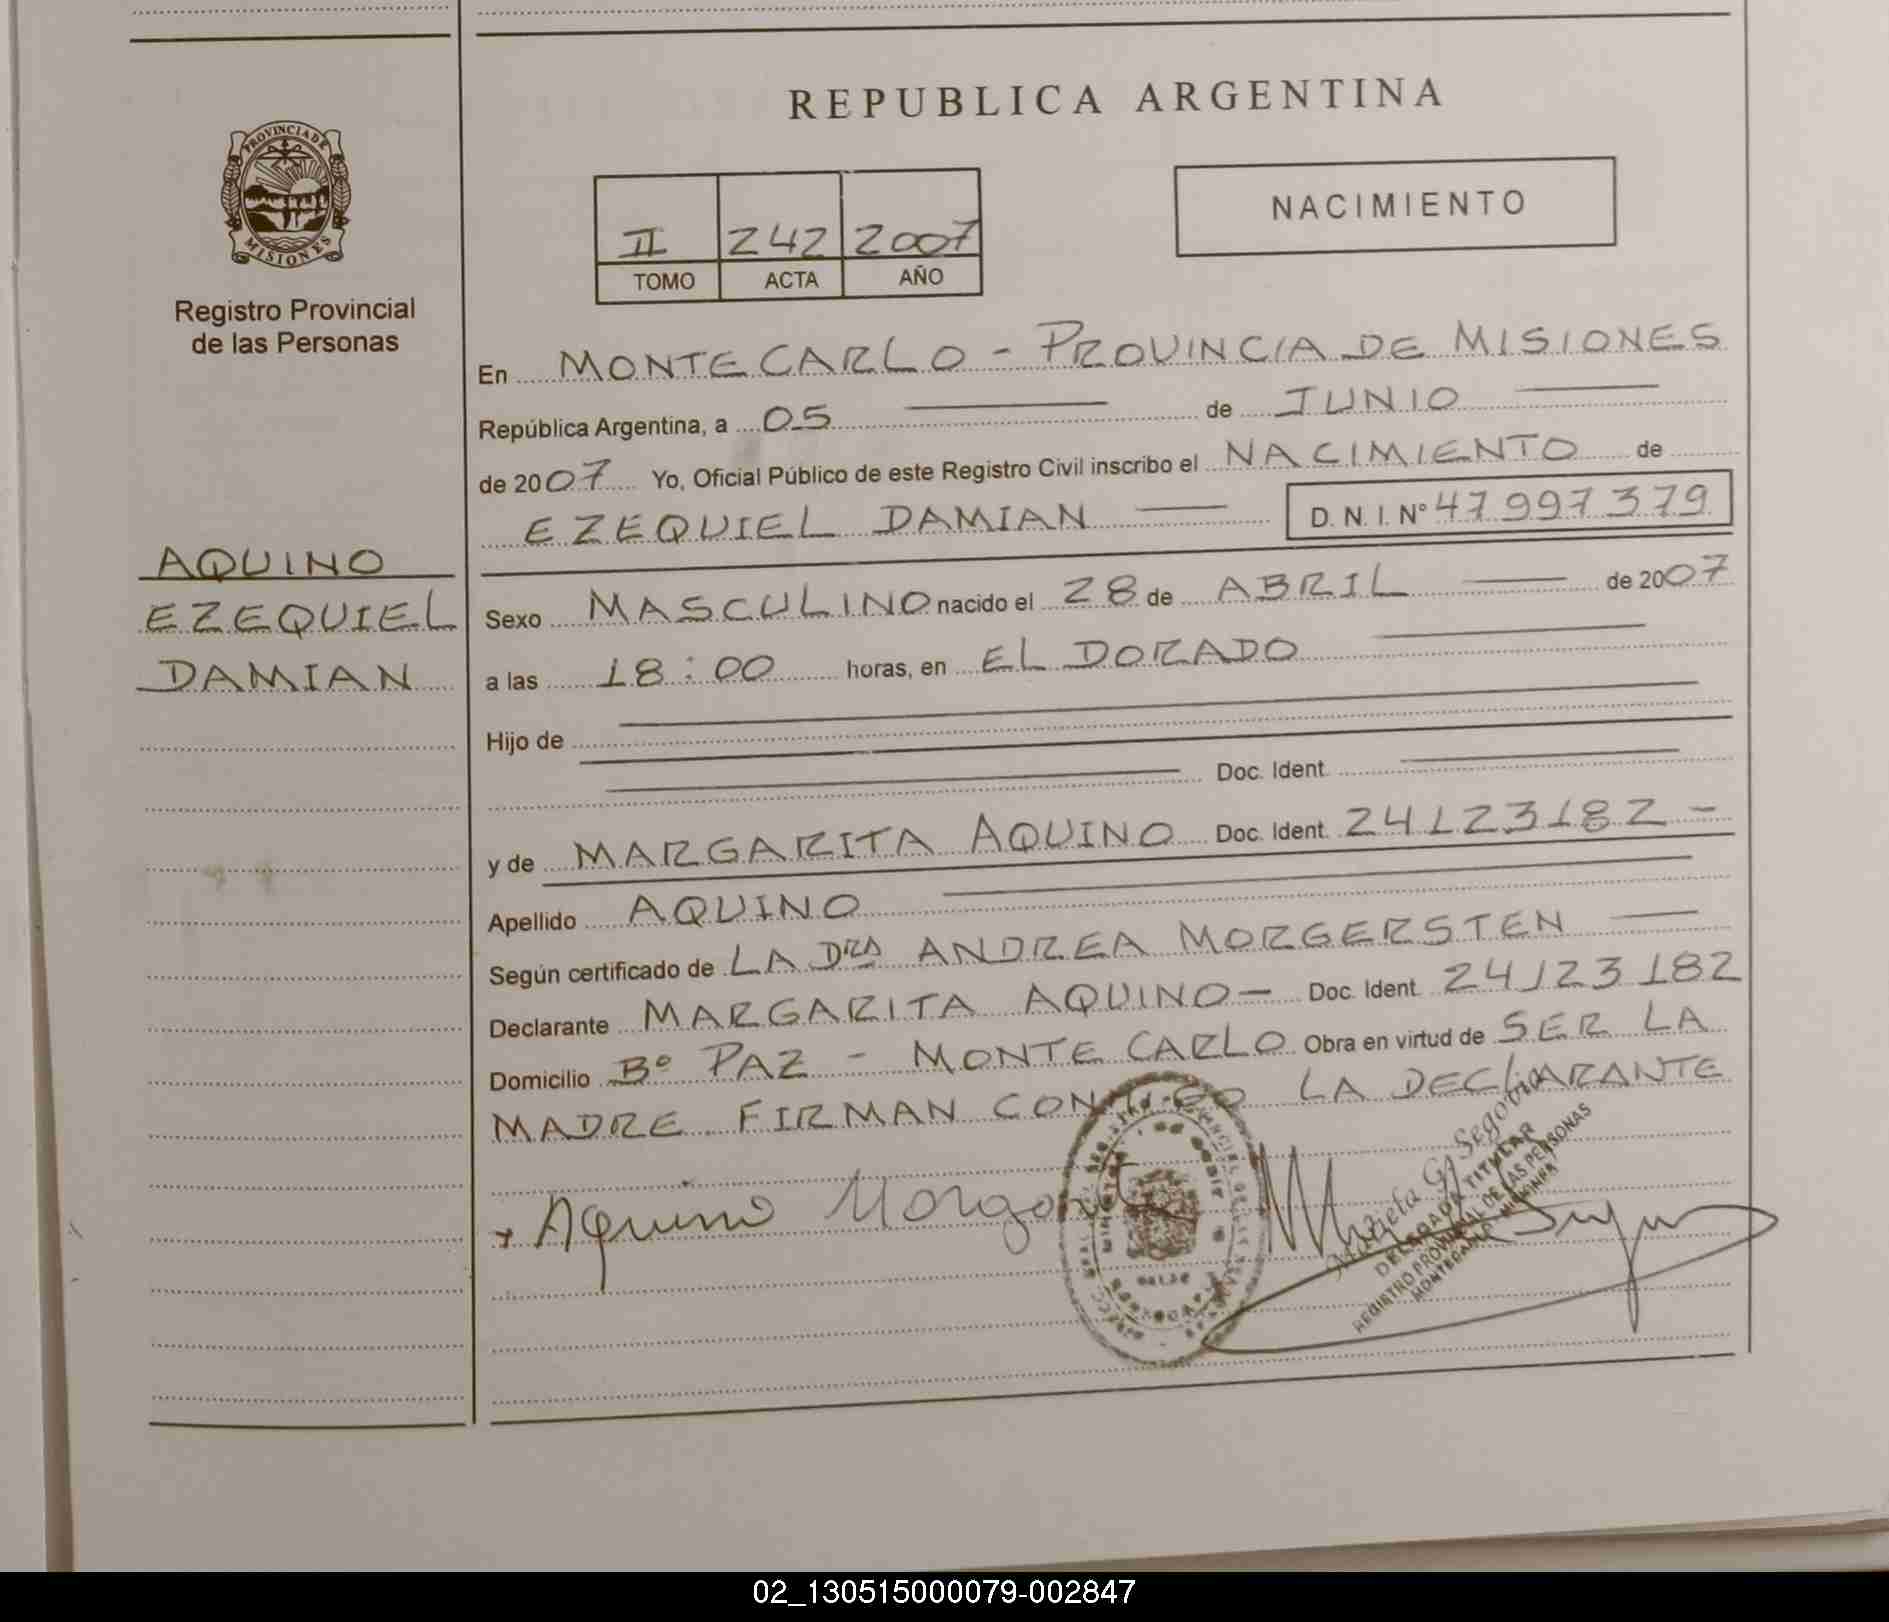 REPUBLICA ARGENTINA
PROVINCIA DE
MISIONES
Registro Provincial
de las Personas
NACIMIENTO
II 242 2007
TOMO ACTA AÑO
En MONTECARLO - PROVINCIA DE MISIONES
República Argentina, a 05 de JUNIO
de 2007 Yo, Oficial Público de este Registro Civil inscribo el NACIMIENTO de
EZEQUIEL DAMIAN D. N. I. N° 47997379
AQUINO
EZEQUIEL
DAMIAN
Sexo MASCULINO nacido el 28 de ABRIL de 2007
a las 18:00 horas, en EL DORADO
Hijo de
Doc. Ident.
y de MARGARITA AQUINO Doc. Ident. 24123182 -
Apellido AQUINO
Según certificado de LA DRA ANDREA MORGERSTEN
Declarante MARGARITA AQUINO - Doc. Ident. 24123182
Domicilio B° PAZ - MONTE CARLO Obra en virtud de SER LA
MADRE FIRMAN CONMIGO LA DECLARANTE
Aquino
Mariela G. Segovia
DELEGADA TITULAR
REGISTRO PROVINCIAL DE LAS PERSONAS
02_130515000079-002847